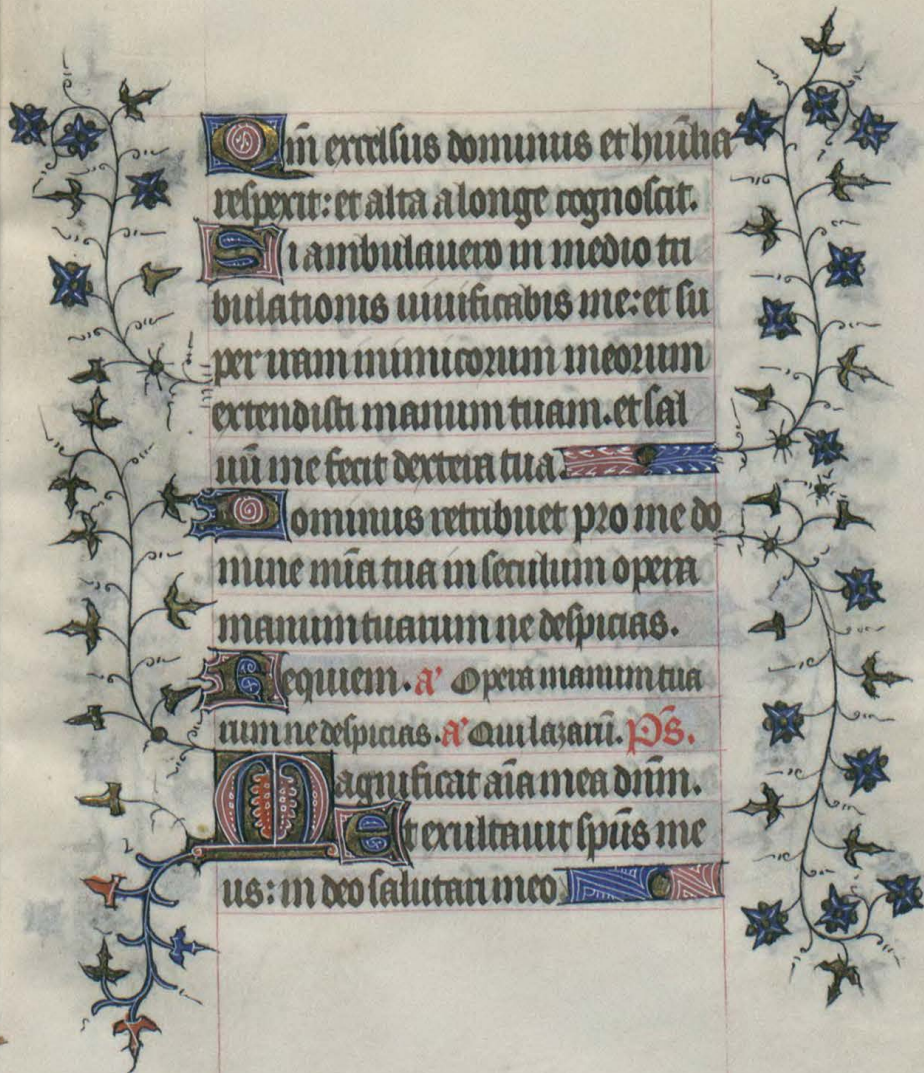 Qm̄ excelsus dominus et huĩlia
respexit: et alta a longe cognoscit.
Si ambulauero in medio tri
bulationis uiuificabis me: et su
per iram inimicorum meorum
extendisti manum tuam. et sal
uũ me fecit dextera tua
Dominus retribuet pro me do
mine mĩa tua in seculum opera
manuum tuarum ne despicias.
Requiem. a' Opera manuum tua
rum ne despicias. a' Qui lazarũ. Ps̄.
Magnificat aĩa mea dñm.
Et exultauit spũs me
us: in deo salutari meo